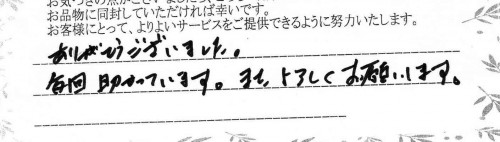 お気づきの点がございましたら
お品物に同封していただければ幸いです。
お客様にとって、よりよいサービスをご提供できるように努力いたします。
ありがとうございました。
毎回助かっています。また、よろしくお願いします。